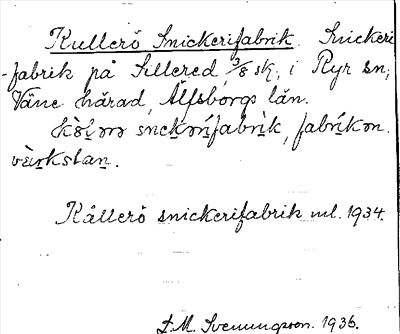 Kullerö Snickerifabrik. Snickeri
-fabrik på Sillered, 3/8 sk, i Ryr sn,
Väne härad, Älfsborgs län.
fabrik, fabrikən.
Kållerö snickerifabrik ml. 1934.
S.M. Svenungsson. 1936.